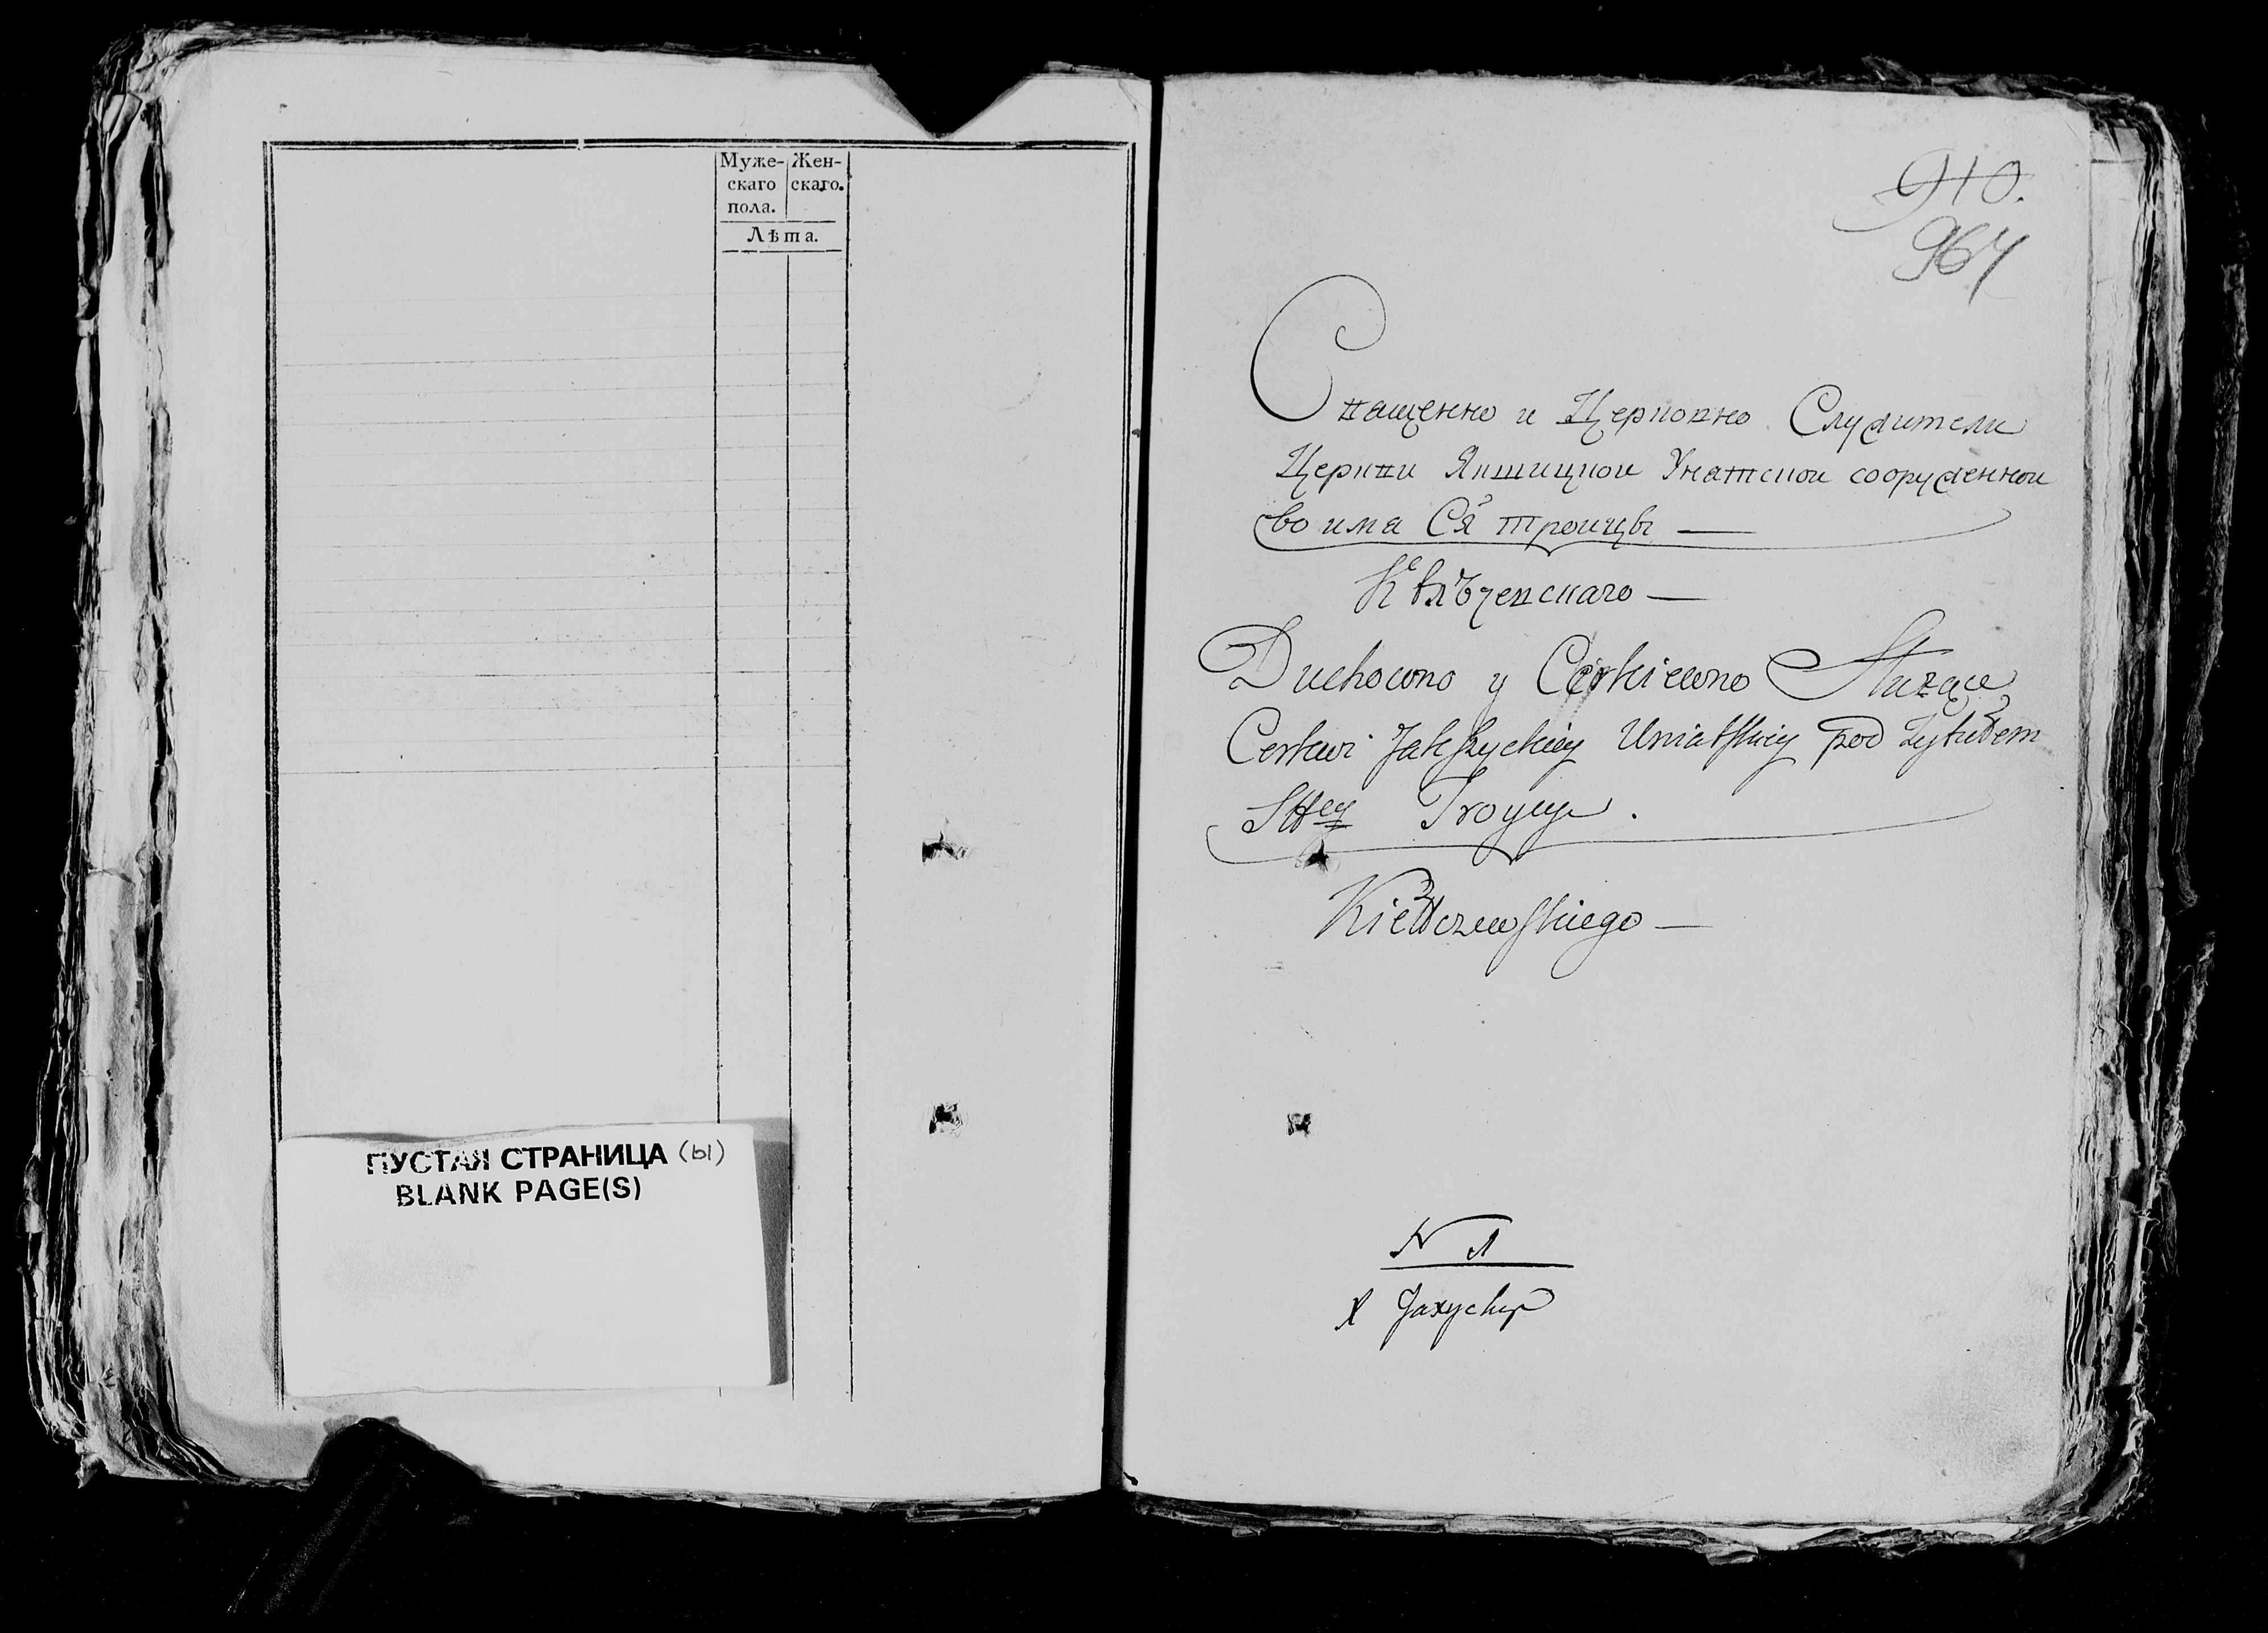 Муже- Жен-
скаго скаго.
пола.
Лѣта.
ПУСТАЯ СТРАНИЦА (ы)
BLANK PAGE(S)
910.
964
Священно и Церковно Служители
Церкви Якшицкои Унатскои сооруженнои
во има Ся троицы —
Duchowno y Cerkiewno Służące
Cerkwi Jakszyckiey Uniatskiey pod Tytułem
Sttey Troycy.
Kiełczewskiego —
N